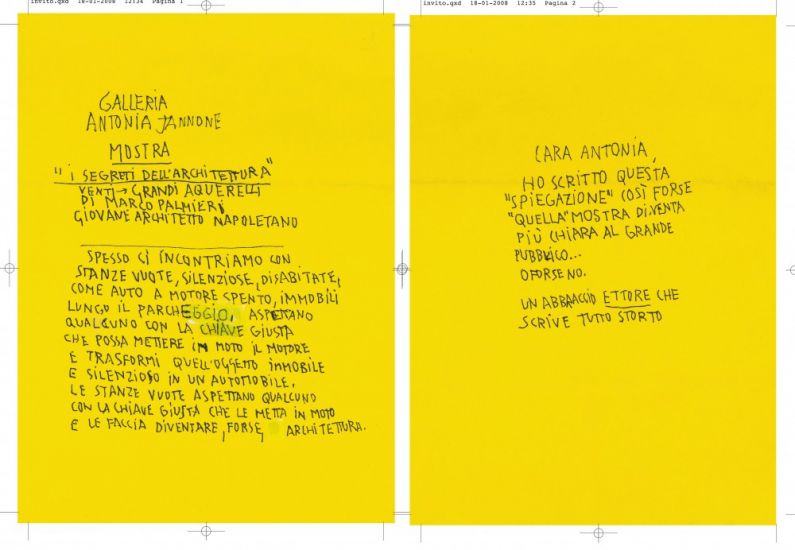 invito.qxd 18-01-2008 12:34 Pagina 1
GALLERIA
ANTONIA JANNONE
MOSTRA
"I SEGRETI DELL'ARCHITETTURA"
VENTI → GRANDI AQUERELLI
DI MARCO PALMIERI
GIOVANE ARCHITETTO NAPOLETANO
SPESSO CI INCONTRIAMO CON
STANZE VUOTE, SILENZIOSE, DISABITATE,
COME AUTO A MOTORE SPENTO, IMMOBILI
LUNGO IL PARCHEGGIO, ASPETTANO
QUALCUNO CON LA CHIAVE GIUSTA
CHE POSSA METTERE IN MOTO IL MOTORE
E TRASFORMI QUELL'OGGETTO IMMOBILE
E SILENZIOSO IN UN AUTOMOBILE.
LE STANZE VUOTE ASPETTANO QUALCUNO
CON LA CHIAVE GIUSTA CHE LE METTA IN MOTO
E LE FACCIA DIVENTARE, FORSE, ARCHITETTURA.
invito.qxd 18-01-2008 12:35 Pagina 2
CARA ANTONIA,
HO SCRITTO QUESTA
"SPIEGAZIONE" COSÌ FORSE
"QUELLA" MOSTRA DIVENTA
PIÙ CHIARA AL GRANDE
PUBBLICO...
O FORSE NO.
UN ABBRACCIO ETTORE CHE
SCRIVE TUTTO STORTO